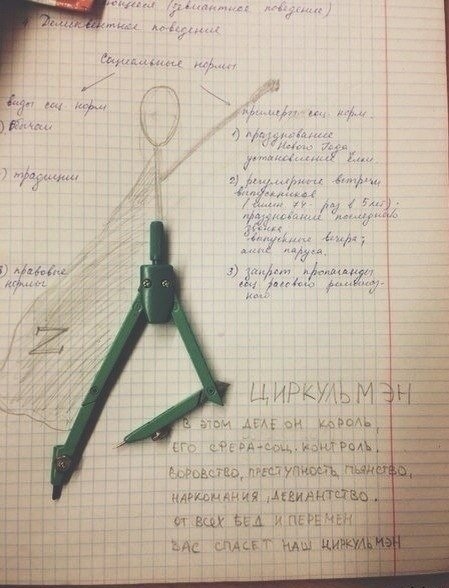 (девиантное поведение)
4. Делинквентное поведение
Социальные нормы
виды соц. норм
примеры соц. норм.
1) обычаи
1) празднование
Нового Года
установление ёлки
2) традиции
2) регулярные встречи
выпускников
раз в 5 лет)
празднование последнего
звонка
выпускные вечера;
алые паруса.
3) правовые
нормы
3) запрет пропаганды
соц. расового
N
ЦИРКУЛЬМЭН
В ЭТОМ ДЕЛЕ ОН КОРОЛЬ,
ЕГО СФЕРА-СОЦ. КОНТРОЛЬ.
ВОРОВСТВО, ПРЕСТУПНОСТЬ, ПЬЯНСТВО,
НАРКОМАНИЯ, ДЕВИАНТСТВО.
ОТ ВСЕХ БЕД И ПЕРЕМЕН
ВАС СПАСЕТ НАШ ЦИРКУЛЬМЭН